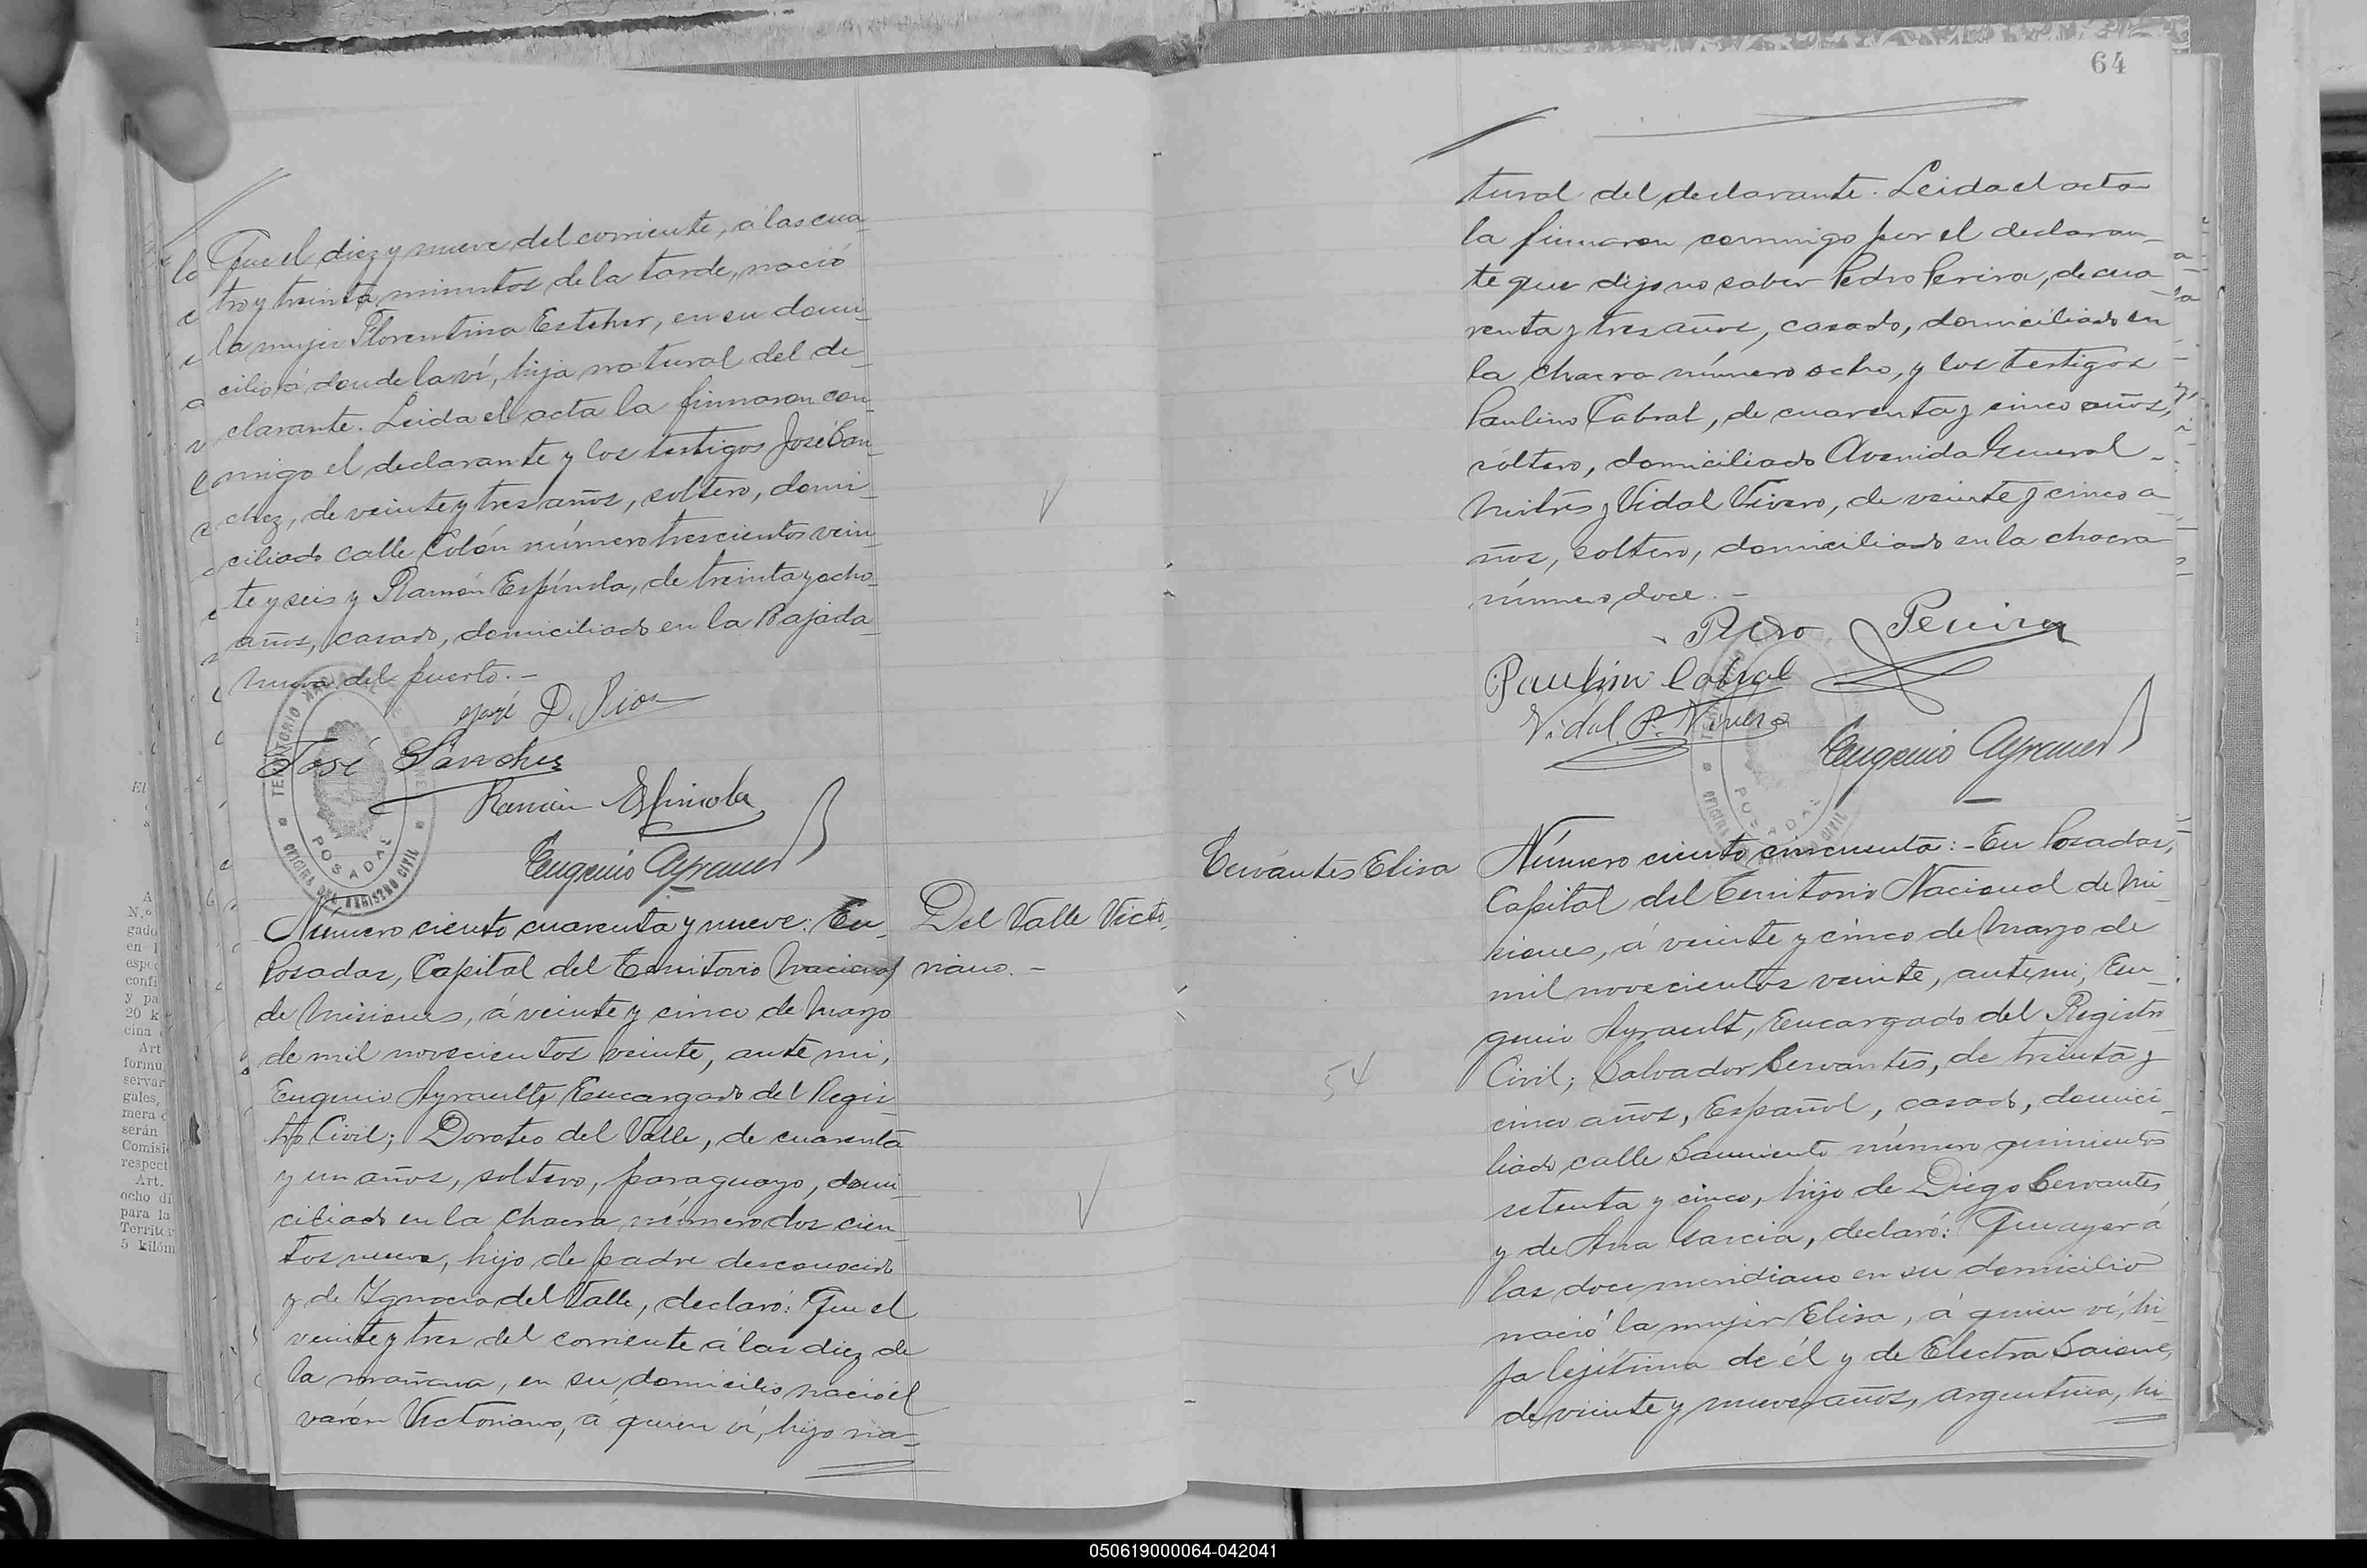 Que el diez y nueve del corriente, á las cua-
tro y treinta minutos de la tarde, nació
la mujer Florentina Estcher, en su domi-
cilio á donde la ví, hija natural del de-
clarante. Leida el acta la firmaron con-
migo el declarante y los testigos José San-
chez, de veinte y tres años, soltero, domi-
ciliado calle Colón número trescientos vein-
te y seis y Ramón Espínola, de treinta y ocho
años, casado, domiciliado en la Bajada
nueva del puerto.-
José D. Rios
José Sanchez
Ramón Espinola
Eugenio Ayrault
TERRITORIO NACIONAL DE MISIONES
POSADAS
OFICINA DEL REGISTRO CIVIL
Número ciento cuarenta y nueve: En
Posadas, Capital del Territorio Nacional
de Misiones, á veinte y cinco de Marzo
de mil novecientos veinte, ante mi,
Eugenio Ayrault, Encargado del Regis-
tro Civil; Doroteo del Valle, de cuarenta
y un años, soltero, paraguayo, domi-
ciliado en la Chacra número dos cien-
tos nueve, hijo de padre desconocido
y de Ygnacia del Valle, declaró: Que el
veinte y tres del corriente á las diez de
la mañana, en su domicilio nació el
varón Victoriano, á quien ví, hijo na-
Del Valle Victo-
riano.-
64
tural del declarante. Leida el acta
la firmaron conmigo por el declaran-
te que dijo no saber Pedro Pereira, de cua-
renta y tres años, casado, domiciliado en
la chacra número ocho, y los testigos
Paulino Cabral, de cuarenta y cinco años,
soltero, domiciliado Avenida General
Mitre y Vidal Vivero, de veinte y cinco a-
ños, soltero, domiciliado en la chacra
número doce.-
Pedro Pereira
Paulino Cabral
Vidal P. Vivero
Eugenio Ayrault
POSADAS
Cervántes Elisa
54
Número ciento cincuenta:- En Posadas,
Capital del Territorio Nacional de Mi-
siones, á veinte y cinco de Marzo de
mil novecientos veinte, ante mi, Eu-
genio Ayrault, Encargado del Registro
Civil; Salvador Cervantes, de treinta y
cinco años, Español, casado, domici-
liado calle Sarmiento número quinientos
setenta y cinco, hijo de Diego Cervantes
y de Ana Garcia, declaró: Que ayer á
las doce meridiano en su domicilio
nació la mujer Elisa, á quien ví, hi-
ja lejítima de él y de Electra
de veinte y nueve años, argentina, hi-
A
N.º
gado
en l
espe
confi
y pa
20 k
cina
Art
formu
servar
gales,
mera
serán
Comisi
respect
Art.
ocho di
para la
Territor
5 kilóm
050619000064-042041